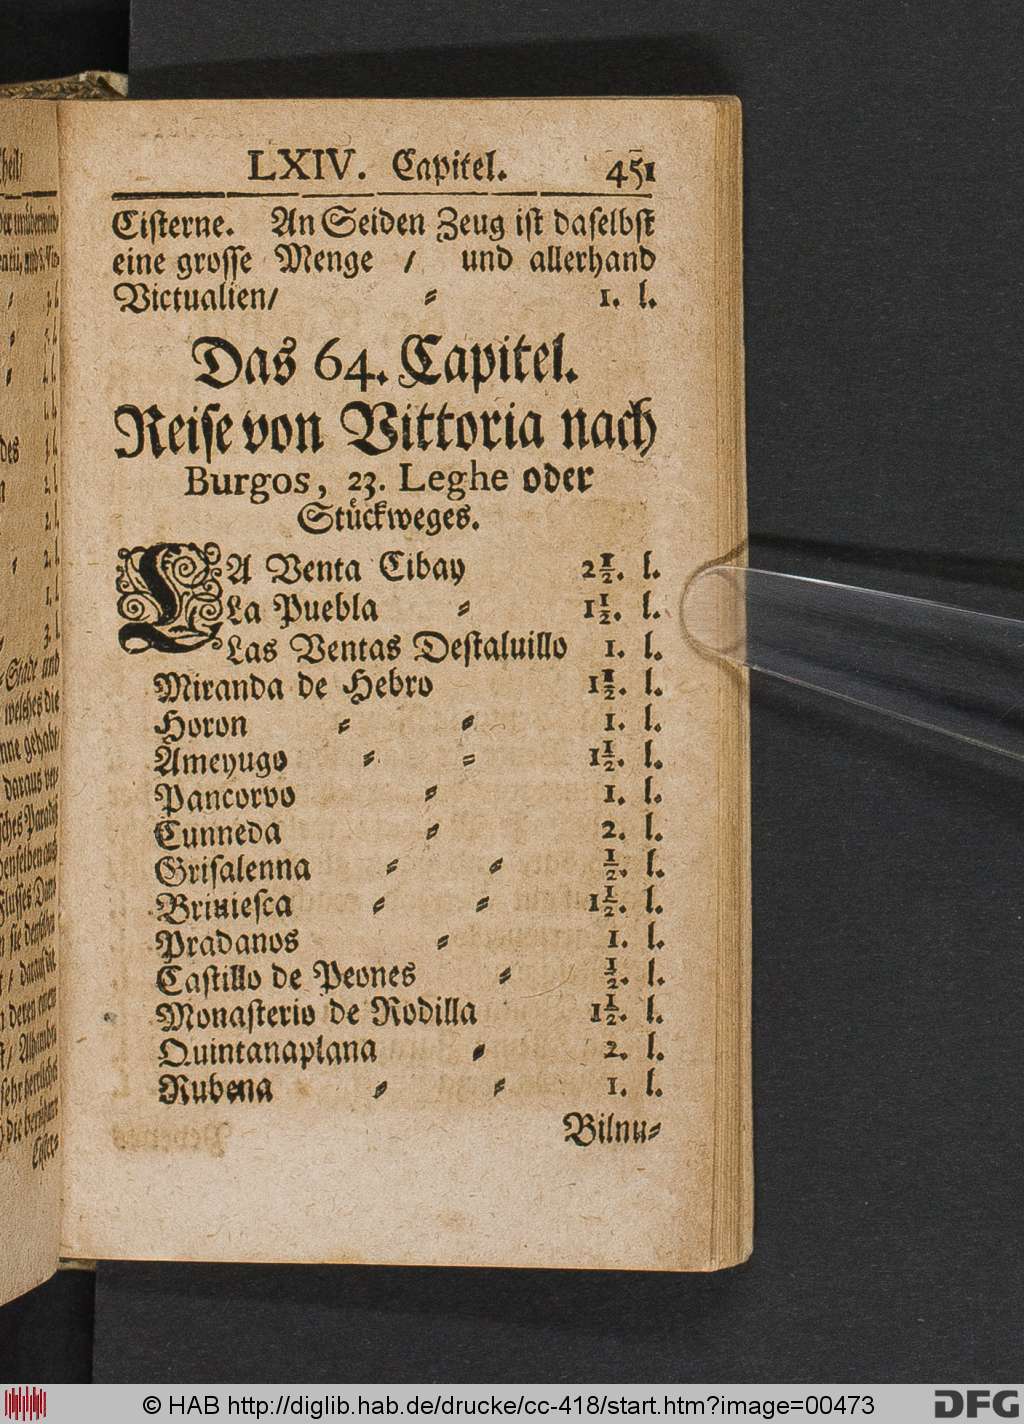 LXIV. Capitel. 451
Cisterne. An Seiden Zeug ist daselbst
eine grosse Menge / und allerhand
Victualien/ = 1. l.
Das 64. Capitel.
Reise von Vittoria nach
Burgos, 23. Leghe oder
Stückweges.
LA Venta Cibay 2 1/2. l.
La Puebla = 1 1/2. l.
Las Ventas Destaluillo 1. l.
Miranda de Hebro 1 1/2. l.
Horon = = 1. l.
Ameyugo = = 1 1/2. l.
Pancorvo = 1. l.
Cunneda = 2. l.
Grisalenna = = 1/2. l.
Briuiesca = = 1 1/2. l.
Pradanos = 1. l.
Castillo de Peones = 1/2. l.
Monasterio de Rodilla 1 1/2. l.
Quintanaplana = 2. l.
Rubena = = 1. l.
Bilnu=
© HAB http://diglib.hab.de/drucke/cc-418/start.htm?image=00473
DFG